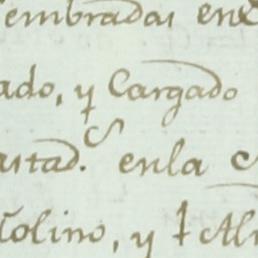 embradas en
ado, y Cargado
astad. en la
olino, y